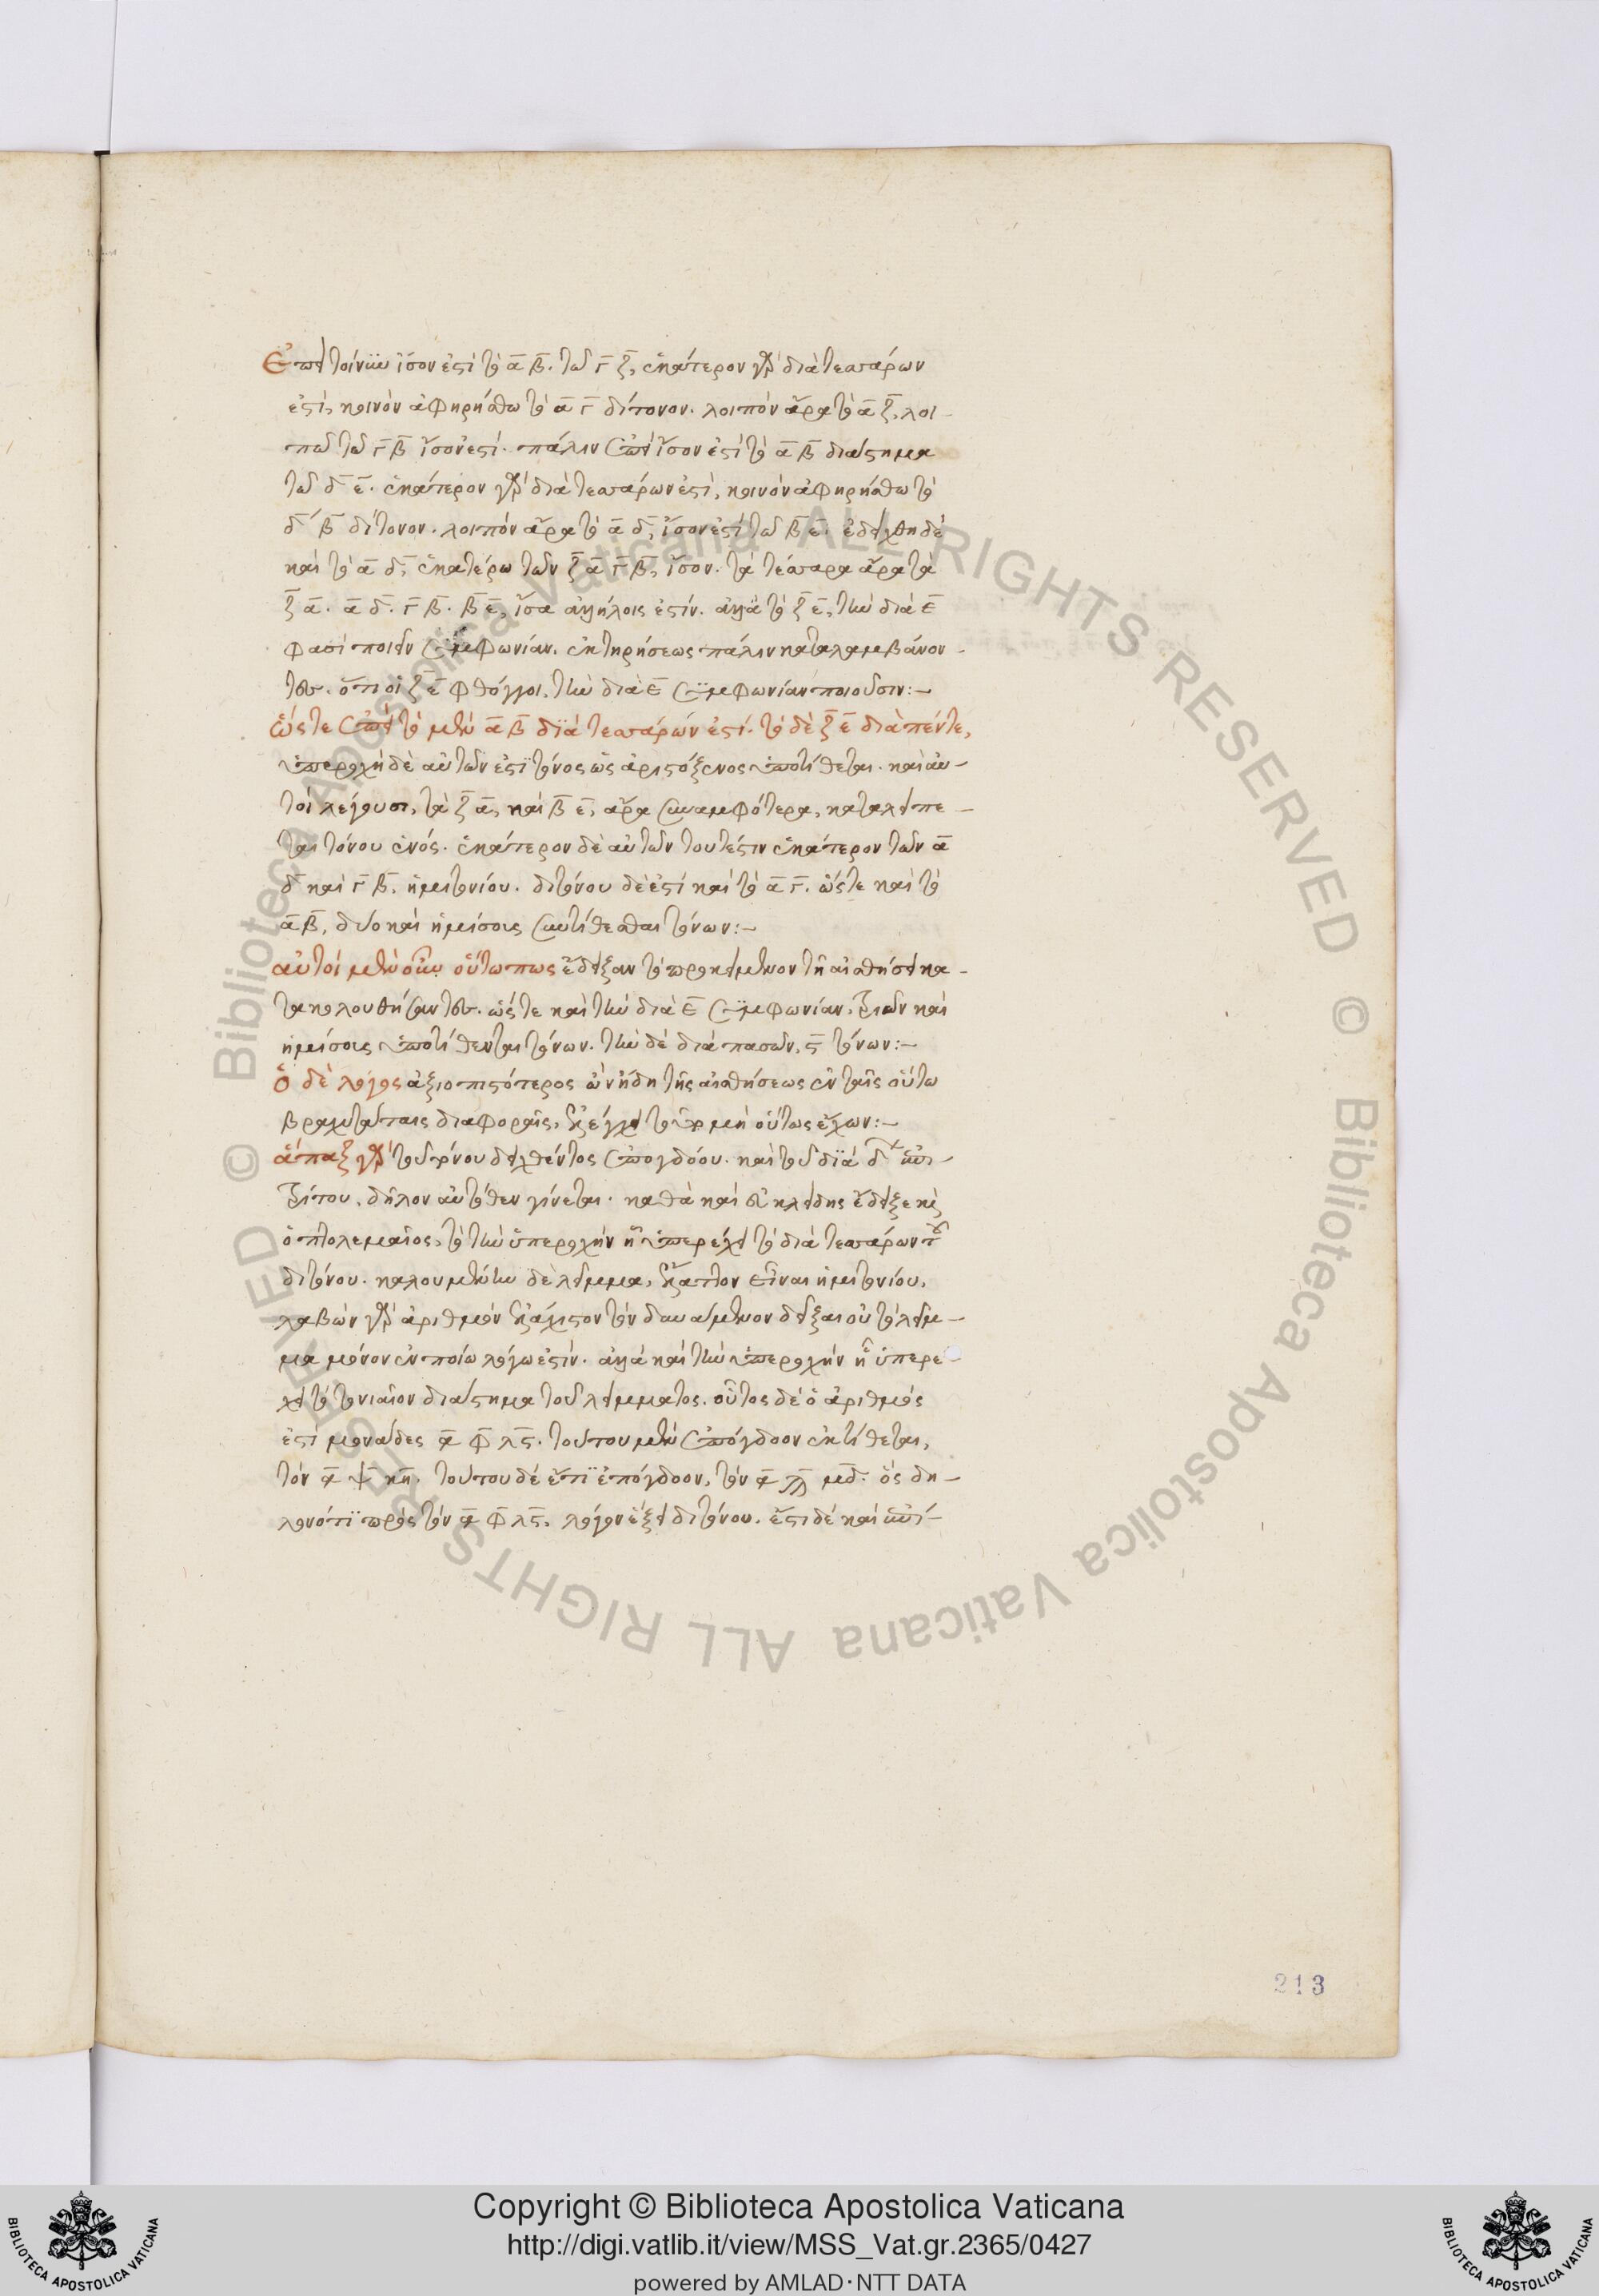 Ἐπεὶ τοίνυν ἴσον ἐστὶ τὸ α̅ β̅. τῶ γ̅ ζ̅, ἑκάτερον γὰρ διὰ τεσσάρων
ἐστὶ, κοινὸν ἀφηρήσθω τὸ α̅ γ̅ δίτονον. λοιπὸν ἄρα τὸ α̅ ζ̅, λοι-
πῶ τῶ γ̅ β̅ ἴσον ἐστί. πάλιν ἐπεὶ ἴσον ἐστὶ τὸ α̅ β̅ διάστημα
τῶ δ̅ ε̅. ἑκάτερον γὰρ διὰ τεσσάρων ἐστὶ, κοινὸν ἀφηρήσθω τὸ
δ̅ β̅ δίτονον. λοιπὸν ἄρα τὸ α̅ δ̅, ἴσον ἐστὶ τῶ β̅ ε̅. ἐδείχθη δὲ
καὶ τὸ α̅ δ̅, ἑκατέρω τῶν ζ̅ α̅ γ̅ β̅, ἴσον. τὰ τέσσαρα ἄρα τὰ
ζ̅ α̅. α̅ δ̅. γ̅ β̅. β̅ ε̅, ἴσα ἀλλήλοις ἐστίν. ἀλλὰ τὸ ζ̅ ε̅, τὴν διὰ ε̅
φασὶ ποιεῖν συμφωνίαν. ἐκ τηρήσεως πάλιν καταλαμβάνον-
τες. ὅτι οἱ ζ̅ ε̅ φθόγγοι, τὴν διὰ ε̅ συμφωνίαν ποιοῦσιν:-
ὥστε ἐπεὶ τὸ μὲν α̅ β̅ διὰ τεσσάρων ἐστί. τὸ δὲ ζ̅ ε̅ διὰ πέντε,
ὑπεροχὴ δὲ αὐτῶν ἐστὶ τόνος ὡς ἀριστόξενος ὑποτίθεται. καὶ αὐ-
τοὶ λέγουσι, τὰ ζ̅ α̅, καὶ β̅ ε̅, ἄρα συναμφότερα, καταλείπε-
ται τόνου ἑνός. ἑκάτερον δὲ αὐτῶν τουτέστιν ἑκάτερον τῶν α̅
δ̅ καὶ γ̅ β̅, ἡμιτονίου. διτόνου δὲ ἐστὶ καὶ τὸ α̅ γ̅. ὥστε καὶ τὸ
α̅ β̅, δύο καὶ ἡμίσους συντίθεσθαι τόνων:-
αὐτοὶ μὲν οὖν οὕτω πως ἔδειξαν τὸ προκείμενον τῇ αἰσθήσει κα-
τακολουθήσαντες. ὥστε καὶ τὴν διὰ ε̅ συμφωνίαν, τριῶν καὶ
ἡμίσους ὑποτίθενται τόνων. τὴν δὲ διὰ πασῶν, ϛ̅ τόνων:-
ὁ δὲ λόγος ἀξιοπιστότερος ὢν ἤδη τῆς αἰσθήσεως ἐν ταῖς οὕτω
βραχυτάταις διαφοραῖς, ἐξελέγχει τοῦτο μὴ οὕτως ἔχων:-
ἅπαξ γὰρ τοῦ τόνου δειχθέντος ἐπογδόου. καὶ τοῦ διὰ δ̅ ἐπι-
τρίτου, δῆλον αὐτόθεν γίνεται. καθὰ καὶ εὐκλείδης ἔδειξε καὶ
ὁ πτολεμαῖος, τὸ τὴν ὑπεροχὴν ᾗ ὑπερέχει τὸ διὰ τεσσάρων τοῦ
διτόνου. καλουμένην δὲ λεῖμμα, ἔλαττον εἶναι ἡμιτονίου,
λαβὼν γὰρ ἀριθμὸν ἐλάχιστον τὸν δυνάμενον δεῖξαι οὐ τὸ λεῖμ-
μα μόνον ἐν ποίω λόγω ἐστίν. ἀλλὰ καὶ τὴν ὑπεροχὴν ᾗ ὑπερέ-
χει τὸ τονιαῖον διάστημα τοῦ λείμματος. οὗτος δὲ ὁ ἀριθμός
ἐστὶ μονάδες ͵α̅ φ̅ λ̅ϛ̅. τούτου μὲν ἐπόγδοον ἐκτίθεται,
τὸν ͵α̅ ψ̅ κ̅η̅. τούτου δὲ ἔτι ἐπόγδοον, τὸν ͵α̅ ϡ̅ μ̅δ̅. ὃς δη-
λονότι πρὸς τὸν ͵α̅ φ̅ λ̅ϛ̅, λόγον ἕξει διτόνου. ἔστι δὲ καὶ ἐπί-
213
Copyright © Biblioteca Apostolica Vaticana
http://digi.vatlib.it/view/MSS_Vat.gr.2365/0427
powered by AMLAD·NTT DATA
BIBLIOTECA APOSTOLICA VATICANA
BIBLIOTECA APOSTOLICA VATICANA
© Biblioteca Apostolica Vaticana ALL RIGHTS RESERVED © Biblioteca Apostolica Vaticana ALL RIGHTS RESERVED